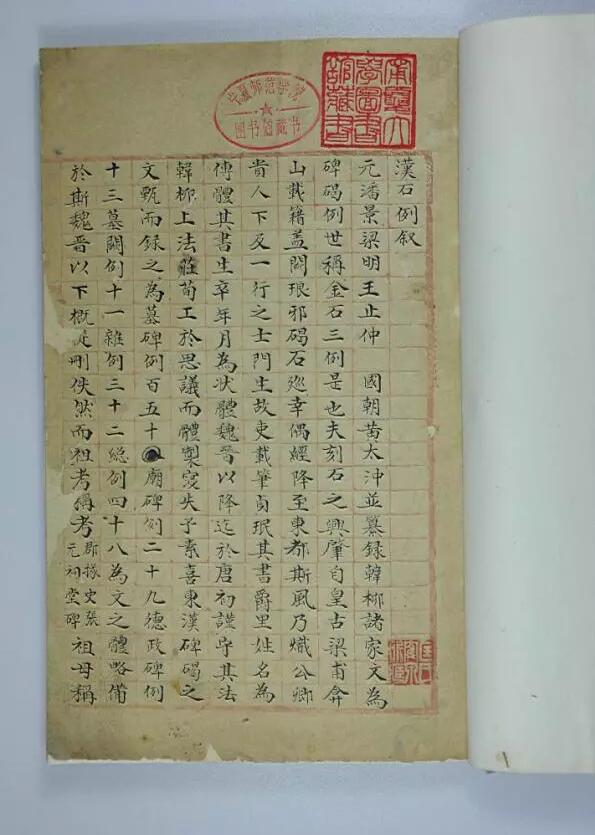 漢石例叙
元潘景梁明王止仲　國朝黃太沖並纂録韓柳諸家文為
碑碣例世稱金石三例是也夫刻石之興肇自皇古梁甫弇
山載籍蓋闕琅邪碣石廵幸偶經降至東都斯風乃熾公卿
貴人下及一行之士門生故吏載筆貞珉其書爵里姓名為
傳體其書生卒年月為狀體魏晉以降迄於唐初謹守其法
韓柳上法莊荀工於思議而體製寖失予素喜東漢碑碣之
文甄而録之為墓碑例百五十廟碑例二十九德政碑例
十三墓闕例十一雜例三十二總例四十八為文之體略備
於斯魏晉以下概從刪佚然而祖考稱考郡掾史張元祠堂碑祖母稱
寧夏大學圖書館藏書
寧夏师范学院
图书馆藏书